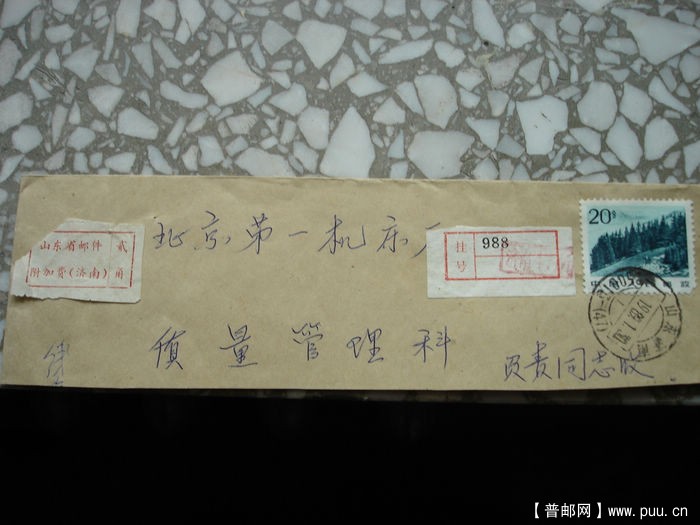 山东省邮件 贰
附加费(济南) 角
北京第一机床厂
挂号 988
20分
质量管理科
负责同志收
山东济南
【普邮网】www.puu.cn